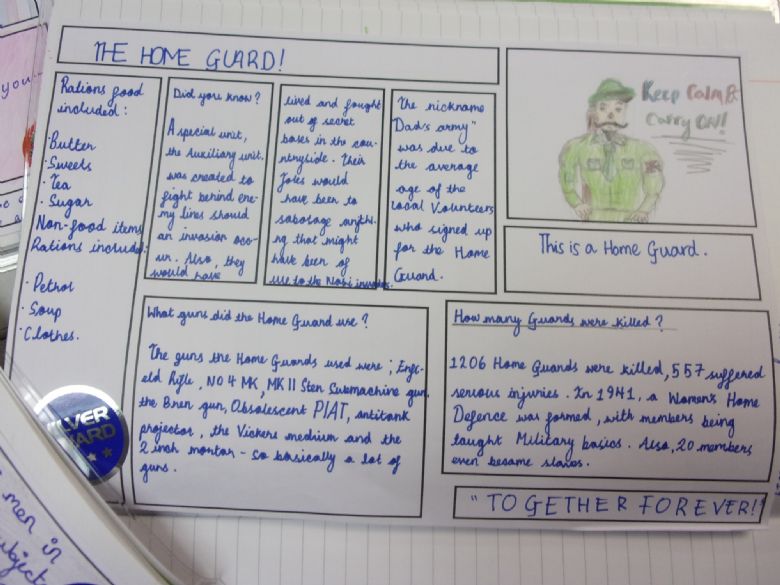 THE HOME GUARD!
Rations food
included:
·Butter
·Sweets
·Tea
·Sugar
Non-food items
Rations included:
·Petrol
·Soup
·Clothes.
Did you know?
A special unit,
the Auxiliary unit.
was created to
fight behind ene-
my lines should
an invasion occ-
ur. Also, they
would have
lived and fought
out of secret
bases in the cou-
ntryside. Their
Jobs would
have been to
sabotage anythi-
ng that might
have been of
use to the Nazi invaders.
The nickname
"Dad's army"
was due to
the average
age of the
Local Volunteers
who signed up
for the Home
Guard.
Keep Calm &
Carry ON!!
This is a Home Guard.
What guns did the Home Guard use?
The guns the Home Guards used were; Enfi-
eld Rifle, NO4 MK, MKII Sten Submachine gun,
the Bren gun, Obsolescent PIAT, antitank
projector, the Vickers medium and the
2 inch mortar - so basically a lot of
guns.
How many Guards were killed?
1206 Home Guards were killed, 557 suffered
serious injuries. In 1941, a Women's Home
Defence was formed, with members being
taught Military basics. Also, 20 members
even became slaves.
"TOGETHER FOREVER!"
you
men in